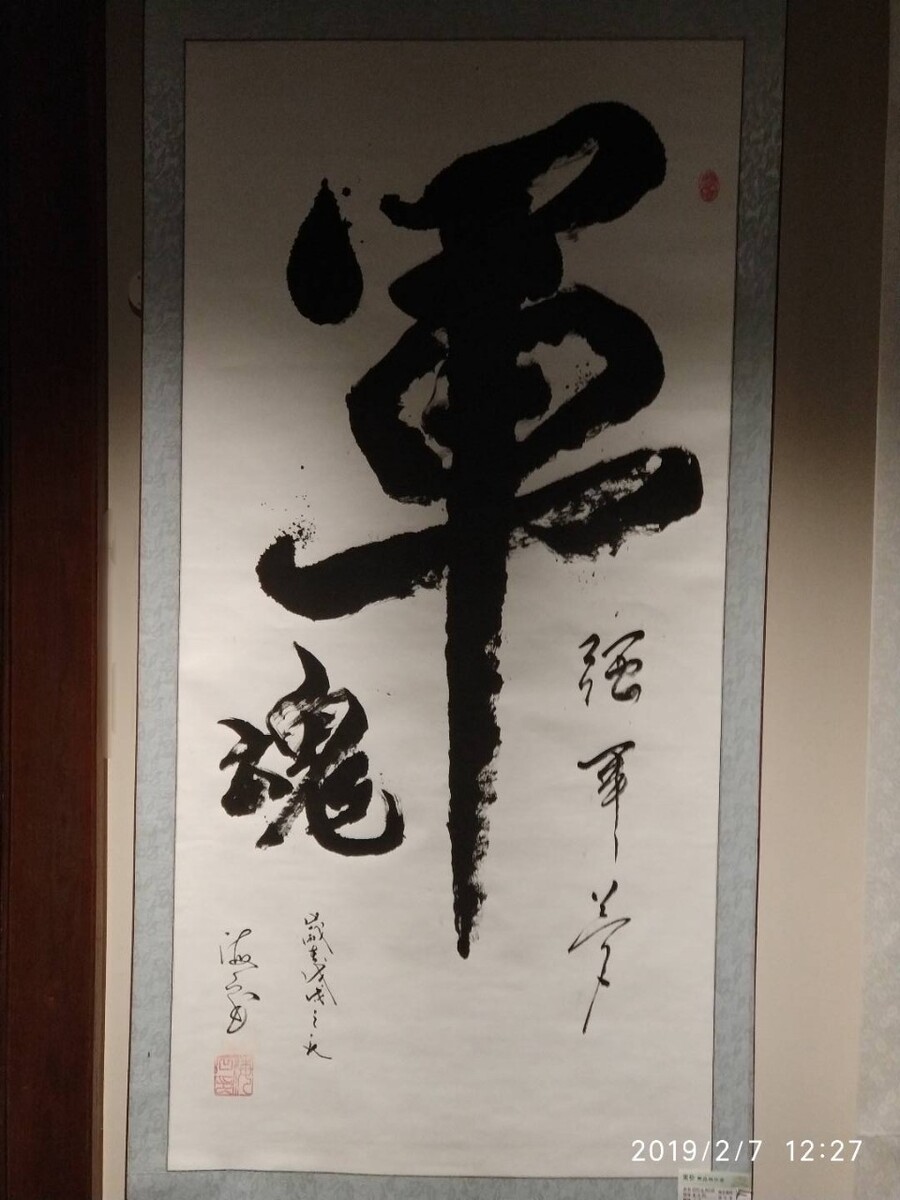 軍
魂
強軍夢
歲在戊戌之秋
2019/2/7 12:27